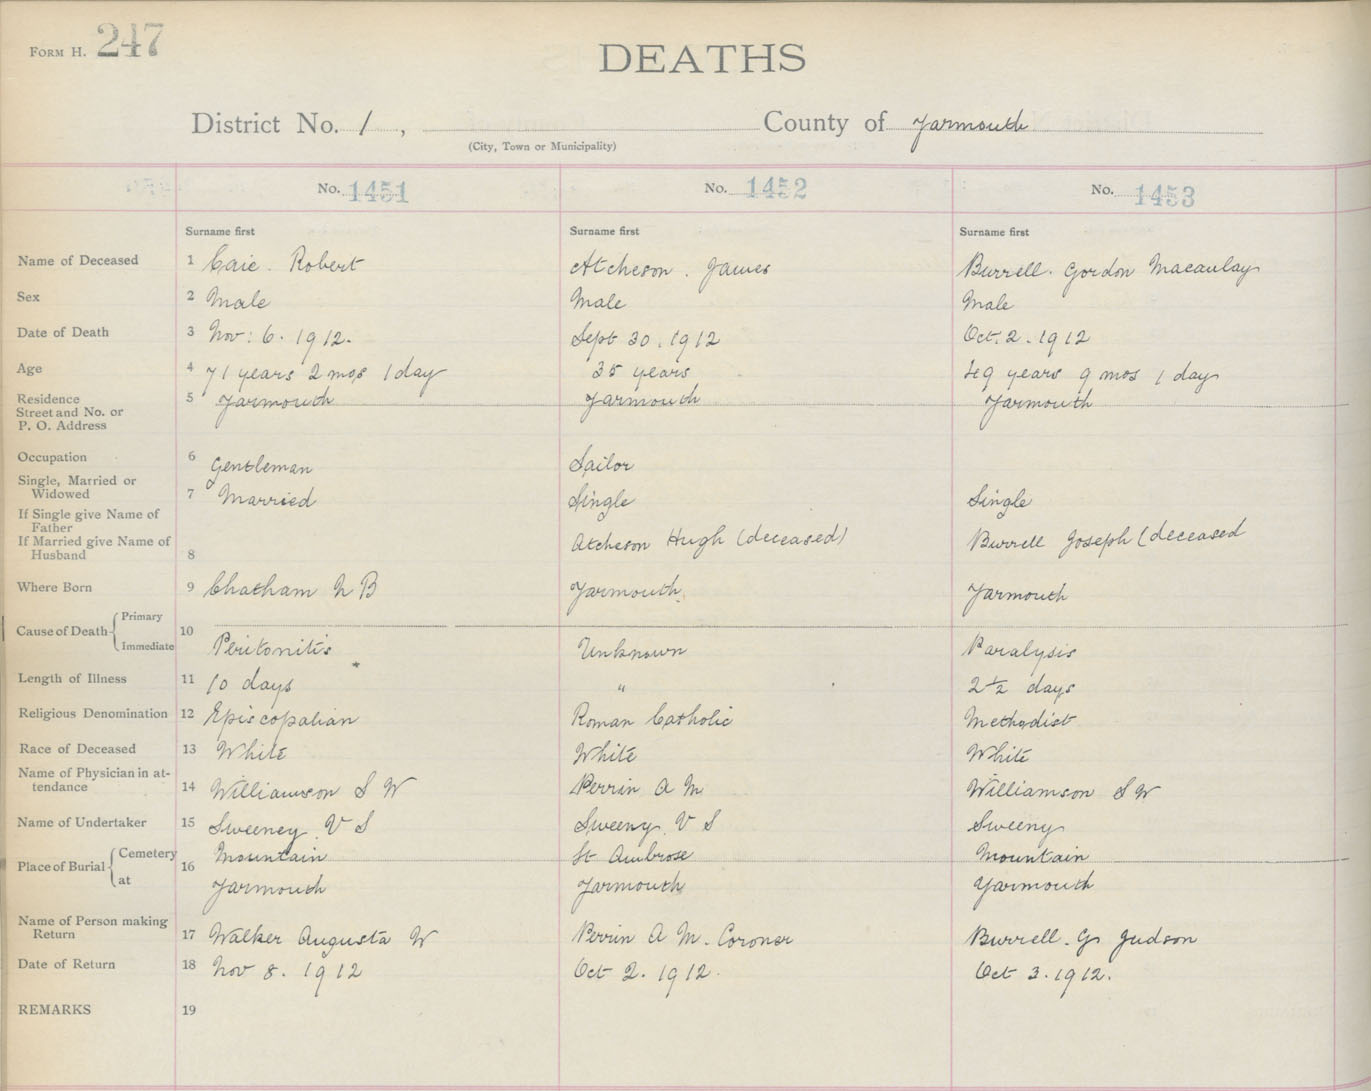 FORM H. 247
DEATHS
District No. 1, County of Yarmouth
(City, Town or Municipality)
No. 1451 No. 1452 No. 1453
Surname first Surname first Surname first
Name of Deceased 1 Caie. Robert Atcheson. James Burrell. Gordon Macaulay
Sex 2 Male Male Male
Date of Death 3 Nov: 6. 1912. Sept 30. 1912 Oct. 2. 1912
Age 4 71 years 2 mos 1 day 35 years 49 years 9 mos 1 day
Residence 5 Yarmouth Yarmouth Yarmouth
Street and No. or
P. O. Address
Occupation 6 Gentleman Sailor
Single, Married or
Widowed 7 Married Single Single
If Single give Name of
Father
If Married give Name of Atcheson Hugh (deceased) Burrell Joseph (deceased
Husband 8
Where Born 9 Chatham N B Yarmouth. Yarmouth
Cause of Death Primary
10
Immediate Peritonitis Unknown Paralysis
Length of Illness 11 10 days " 2½ days
Religious Denomination 12 Episcopalian Roman Catholic Methodist
Race of Deceased 13 White White White
Name of Physician in at-
tendance 14 Williamson S W Perrin A M Williamson S W
Name of Undertaker 15 Sweeney V S Sweeny V S Sweeny
Place of Burial Cemetery 16 Mountain St Ambrose Mountain
at Yarmouth Yarmouth Yarmouth
Name of Person making
Return 17 Walker Augusta W Perrin A M. Coroner Burrell. G Judson
Date of Return 18 Nov 8. 1912 Oct 2. 1912. Oct 3. 1912.
REMARKS 19